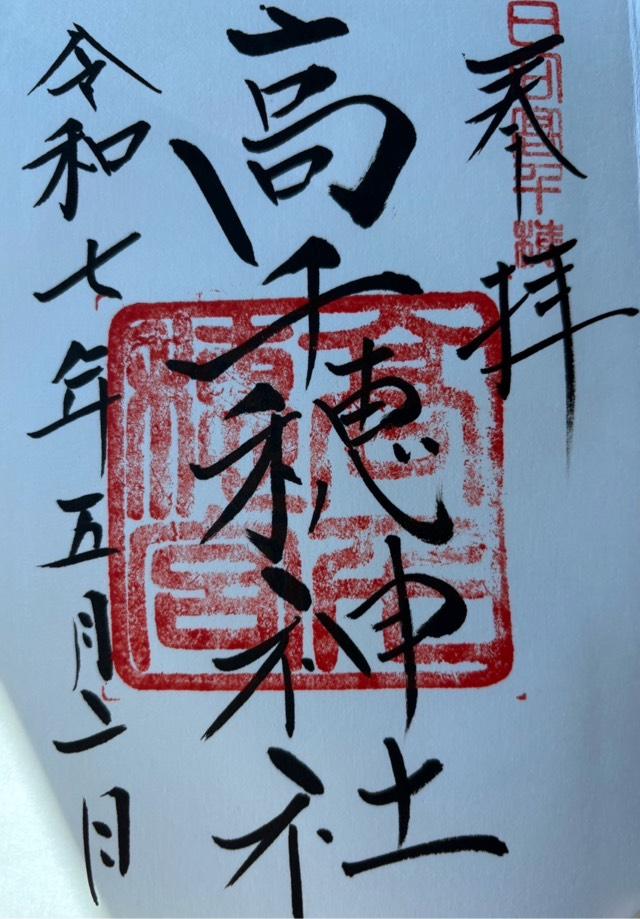 奉拝
日向高千穂
高千穂神社
令和七年五月二日